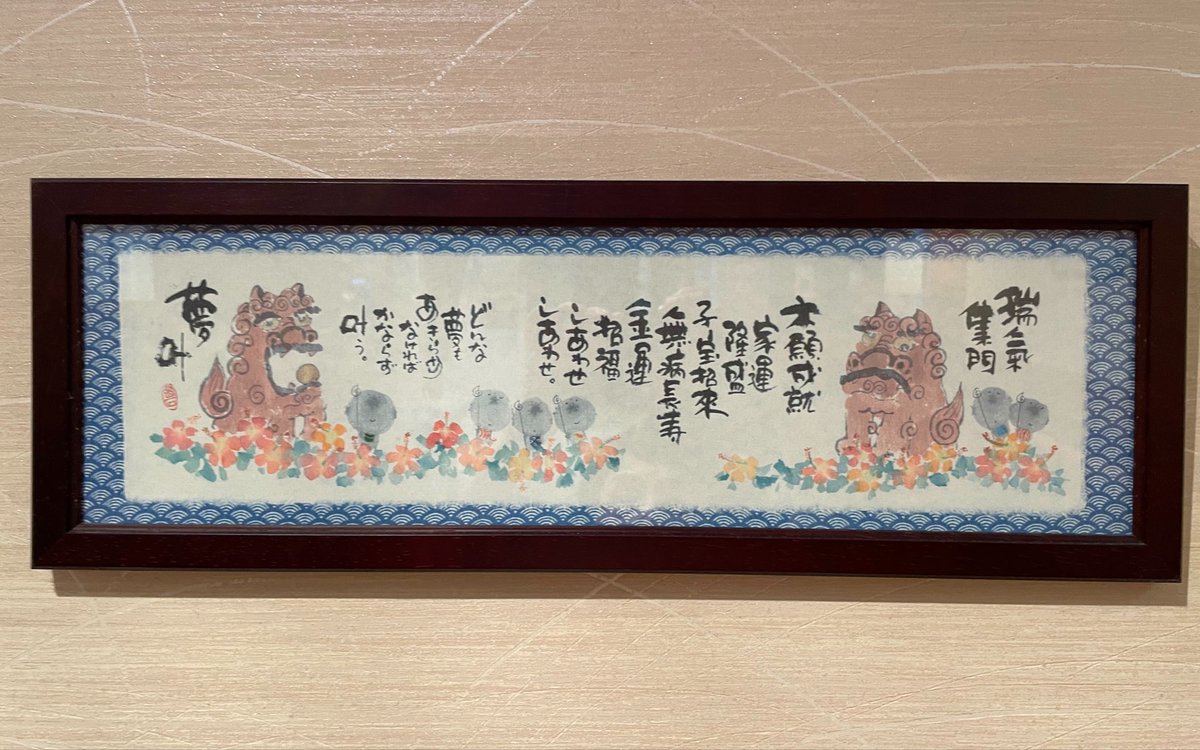 瑞氣
集門
大願成就
家運
隆盛
子宝招来
無病長寿
金運
招福
しあわせ
しあわせ。
どんな
夢も
あきらめ
なければ
かならず
叶う。
夢
叶